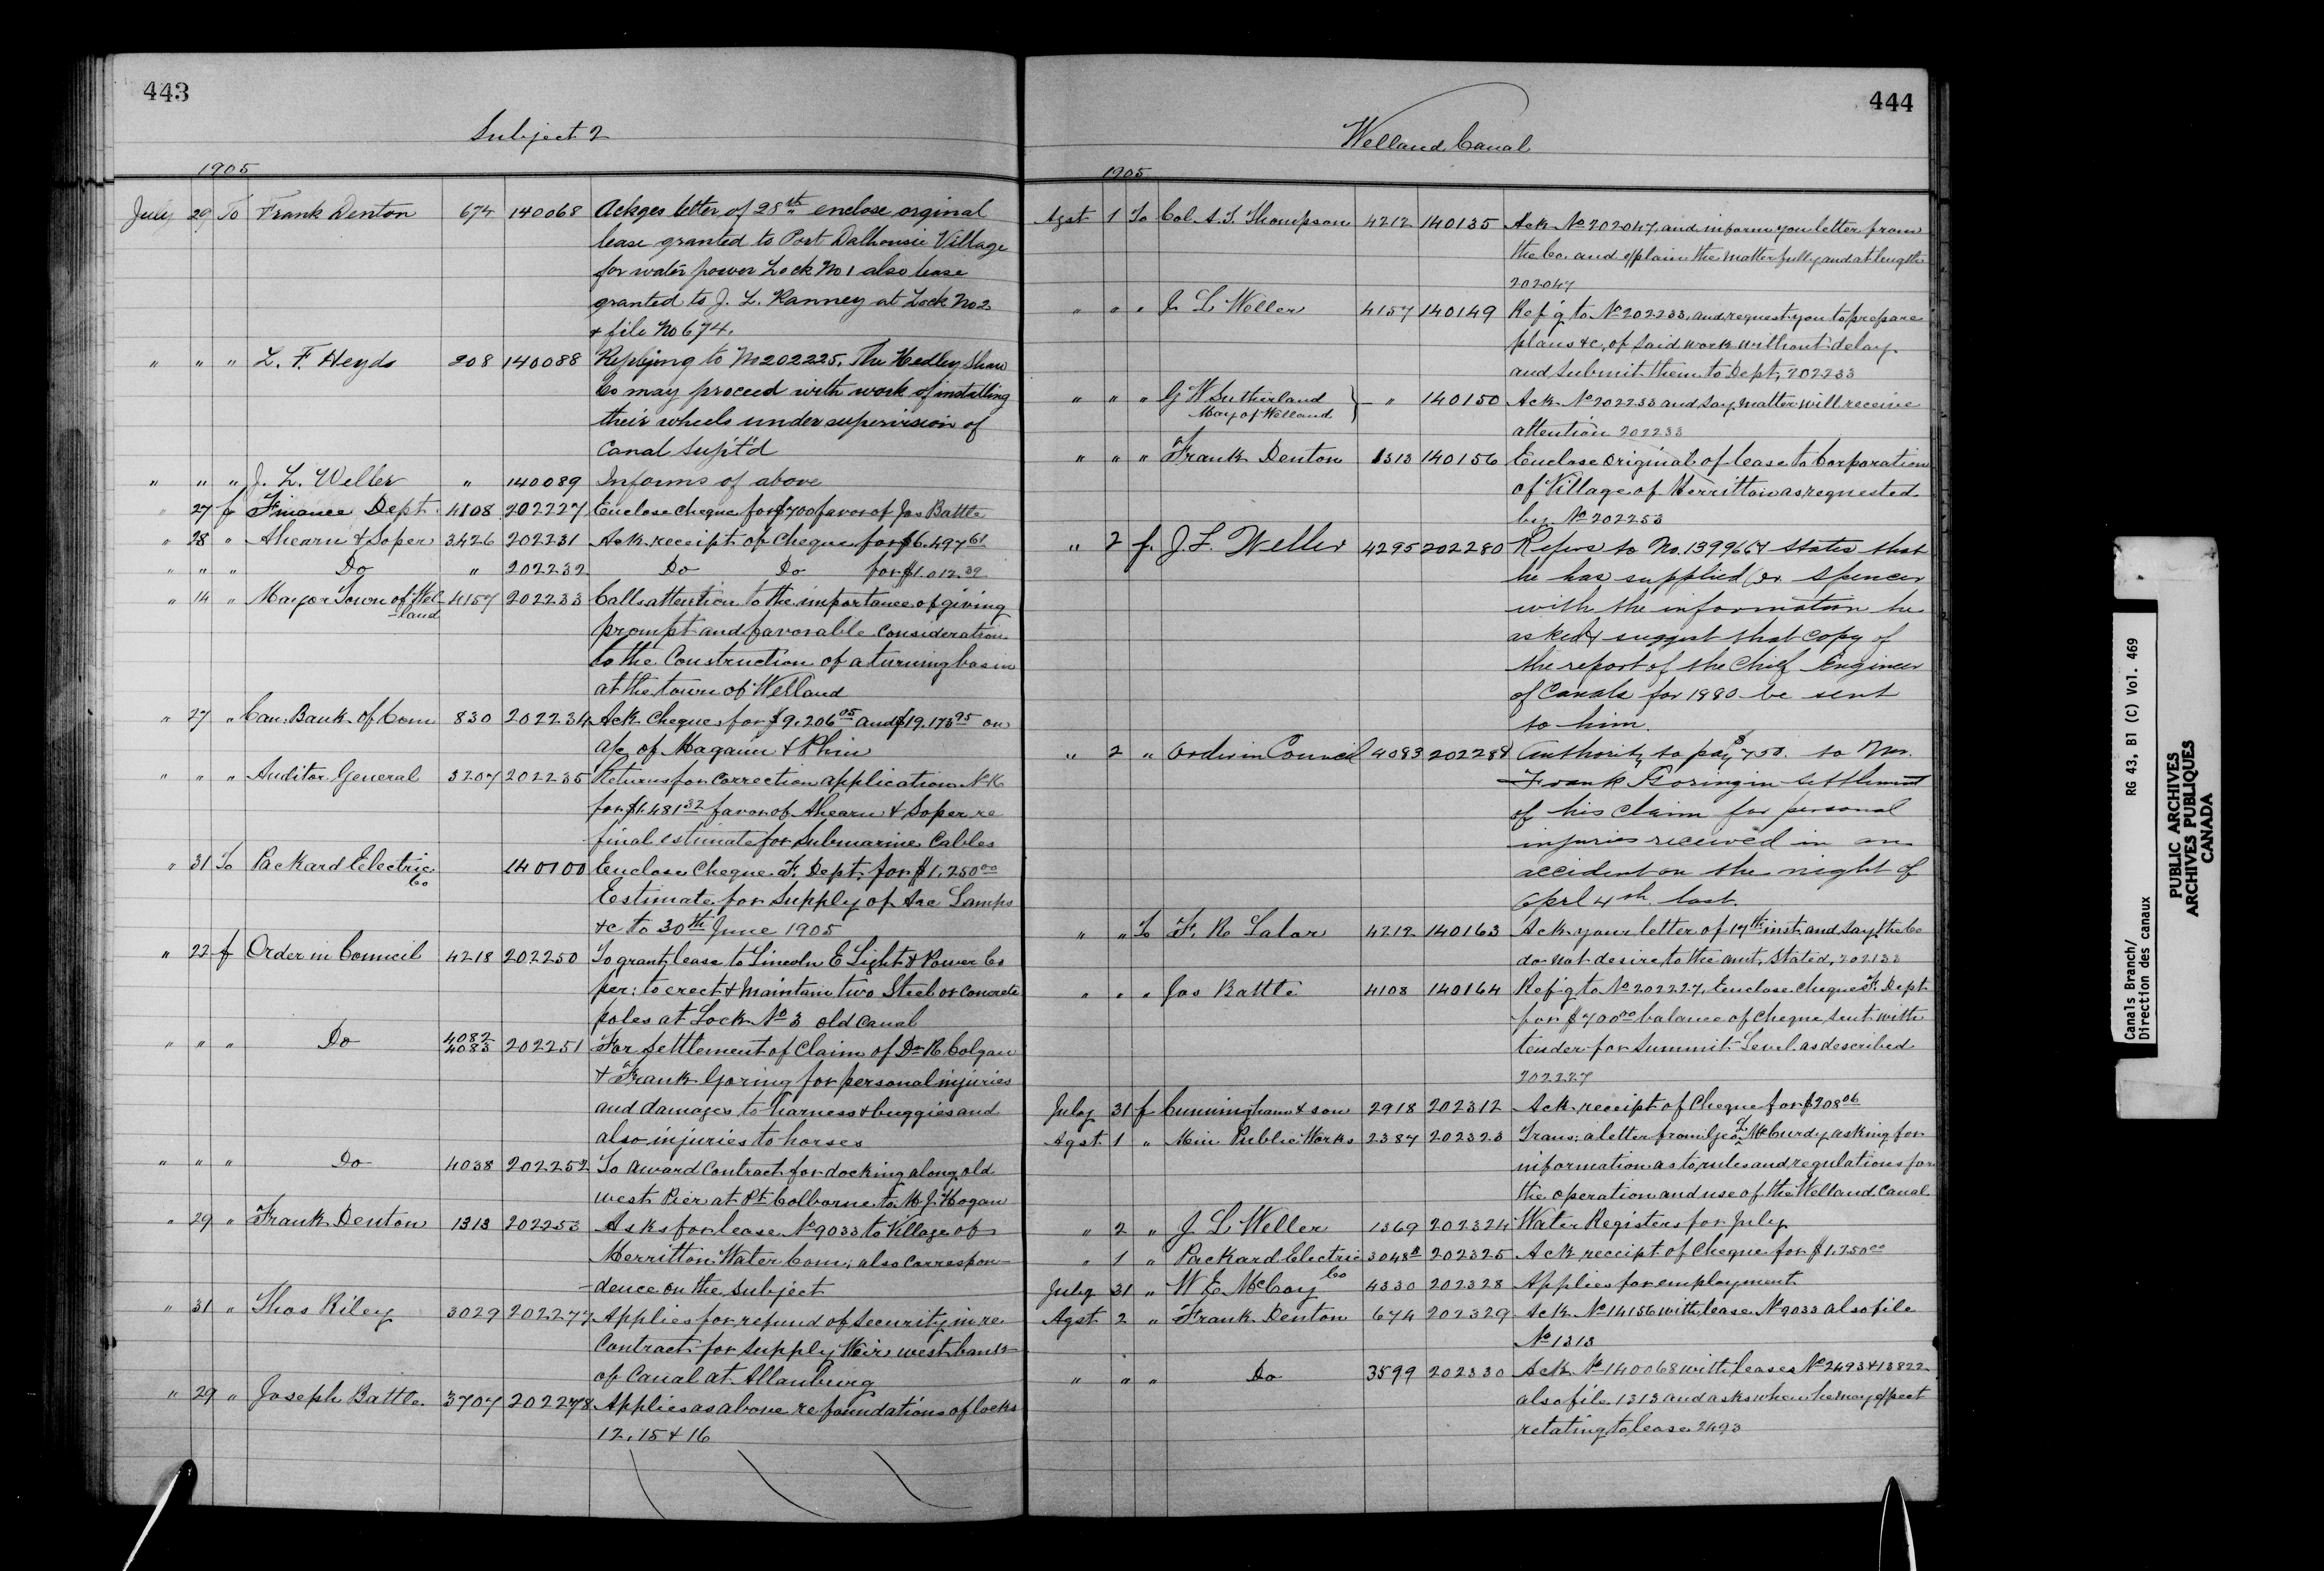 443
Subject 2
1905
July 29 To Frank Denton 674 140068 Ackges letter of 28th enclose orginal
lease granted to Port Dalhousie Village
for water power Lock No 1 also lease
granted to J. L. Ranney at Lock No 2
& file No 674.
" " " L. F. Heyds 208 140088 Replying to No 202225. The Hedley Shaw
Co may proceed with work of installing
their wheels under supervision of
Canal Supt'd
" " " J. L. Weller " 140089 Informs of above
" 27 f Finance Dept. 4108 202227 Enclose cheque for $700 favor of Jas Battle
" 28 " Ahearn & Soper 3426 202231 Ack receipt of cheque for $6.497 61
" " " Do " 202232 Do Do for $1.012.39
" 14 " Mayor Town of Wel-land 4157 202233 Calls attention to the importance of giving
prompt and favorable consideration
to the Construction of a turning basin
at the town of Welland
" 27 " Can. Bank of Com 830 202234 Ack. Cheques for $9.206 05 and $19.173 95 on
a/c of Magann & Phin
" " " Auditor General 3207 202235 Returns for correction application No K
for $1.481 32 favor of Ahearn & Soper re
final estimate for Submarine Cables
" 31 To Packard Electric Co 140100 Enclose Cheque F. Dept. for $1,250 00
Estimate for Supply of Arc Lamps
&c to 30th June 1905
" 22 f Order in Council 4218 202250 To grant lease to Lincoln E Light & Power Co
per: to erect & maintain two Steel or Concrete
poles at Lock No 3 old canal
" " " Do 4082 4083 202251 For Settlement of Claim of Dr R. Colgan
& Frank Goring for personal injuries
and damages to harness & buggies and
also injuries to horses
" " " Do 4038 202252 To award Contract for docking along old
west Pier at Pt Colborne to M. J. Hogan
" 29 " Frank Denton 1313 202253 Asks for lease No 9033 to Village of
Merritton Water Com; also Correspon-
-dence on the subject
" 31 " Thos Riley 3029 202277 Applies for refund of Security in re
Contract for Supply Weir west bank
of Canal at Allanburg
" 29 " Joseph Battle. 3707 202278 Applies as above re foundations of locks
12, 15 & 16
444
Welland Canal
1905
Agst 1 To Col. A. T. Thompson 4212 140135 Ack No 202047, and inform you letter from
the Co. and explain the matter fully and at length
202047
" " " J L Weller 4157 140149 Ref'g to No 202233, and request you to prepare
plans &c, of said work without delay
and submit them to Dept, 202233
" " " G W Sutherland May of Welland } — " 140150 Ack No 202233 and say matter will receive
attention 202233
" " " Frank Denton 1313 140156 Enclose original of lease to Corporation
of Village of Merritton as requested
by No 202253
" 2 f. J. L. Weller 4295 202280 Refers to No. 139966 & states that
he has supplied Dr Spencer
with the information he
asked & suggest that copy of
the report of the Chief Engineer
of Canals for 1880 be sent
to him.
" 2 " Order in Council 4083 202289 Authority to pay $750. to Mr.
Frank Goring in settlement
of his claim for personal
injuries received in an
accident on the night of
Aprl 4th last.
" " To F. R. Lalor 4212 140163 Ack your letter of 17th inst. and say the Co
do not desire to the amt. stated, 202132
" " " Jas Battle 4108 140164 Ref'g to No 202227, Enclose cheque F. Dept
for $700 00 balance of Cheque sent with
tender for Summit Level as described
202227
July 31 f Cunningham & son 2918 202312 Ack receipt of Cheque for $208 06
Agst 1 " Min Public Works 2387 202323 Trans: a letter from Geo. L. McCurdy asking for
information as to rules and regulations for
the operation and use of the Welland Canal
" 2 " J L Weller 1369 202324 Water Registers for July
" 1 " Packard Electric Co 3048 202325 Ack receipt of Cheque for $1.250 00
July 31 " W E McCoy 4330 202328 Applies for employment
Agst 2 " Frank Denton 674 202329 Ack No 14156 with lease No 9033 also file
No 1313
" " " Do 3599 202330 Ack No 140068 with leases No 2493 & 13822
also file 1313 and asks when he may expect
relating to lease 2493
Canals Branch/ RG 43, B1 (C) Vol. 469
Direction des canaux
PUBLIC ARCHIVES
ARCHIVES PUBLIQUES
CANADA